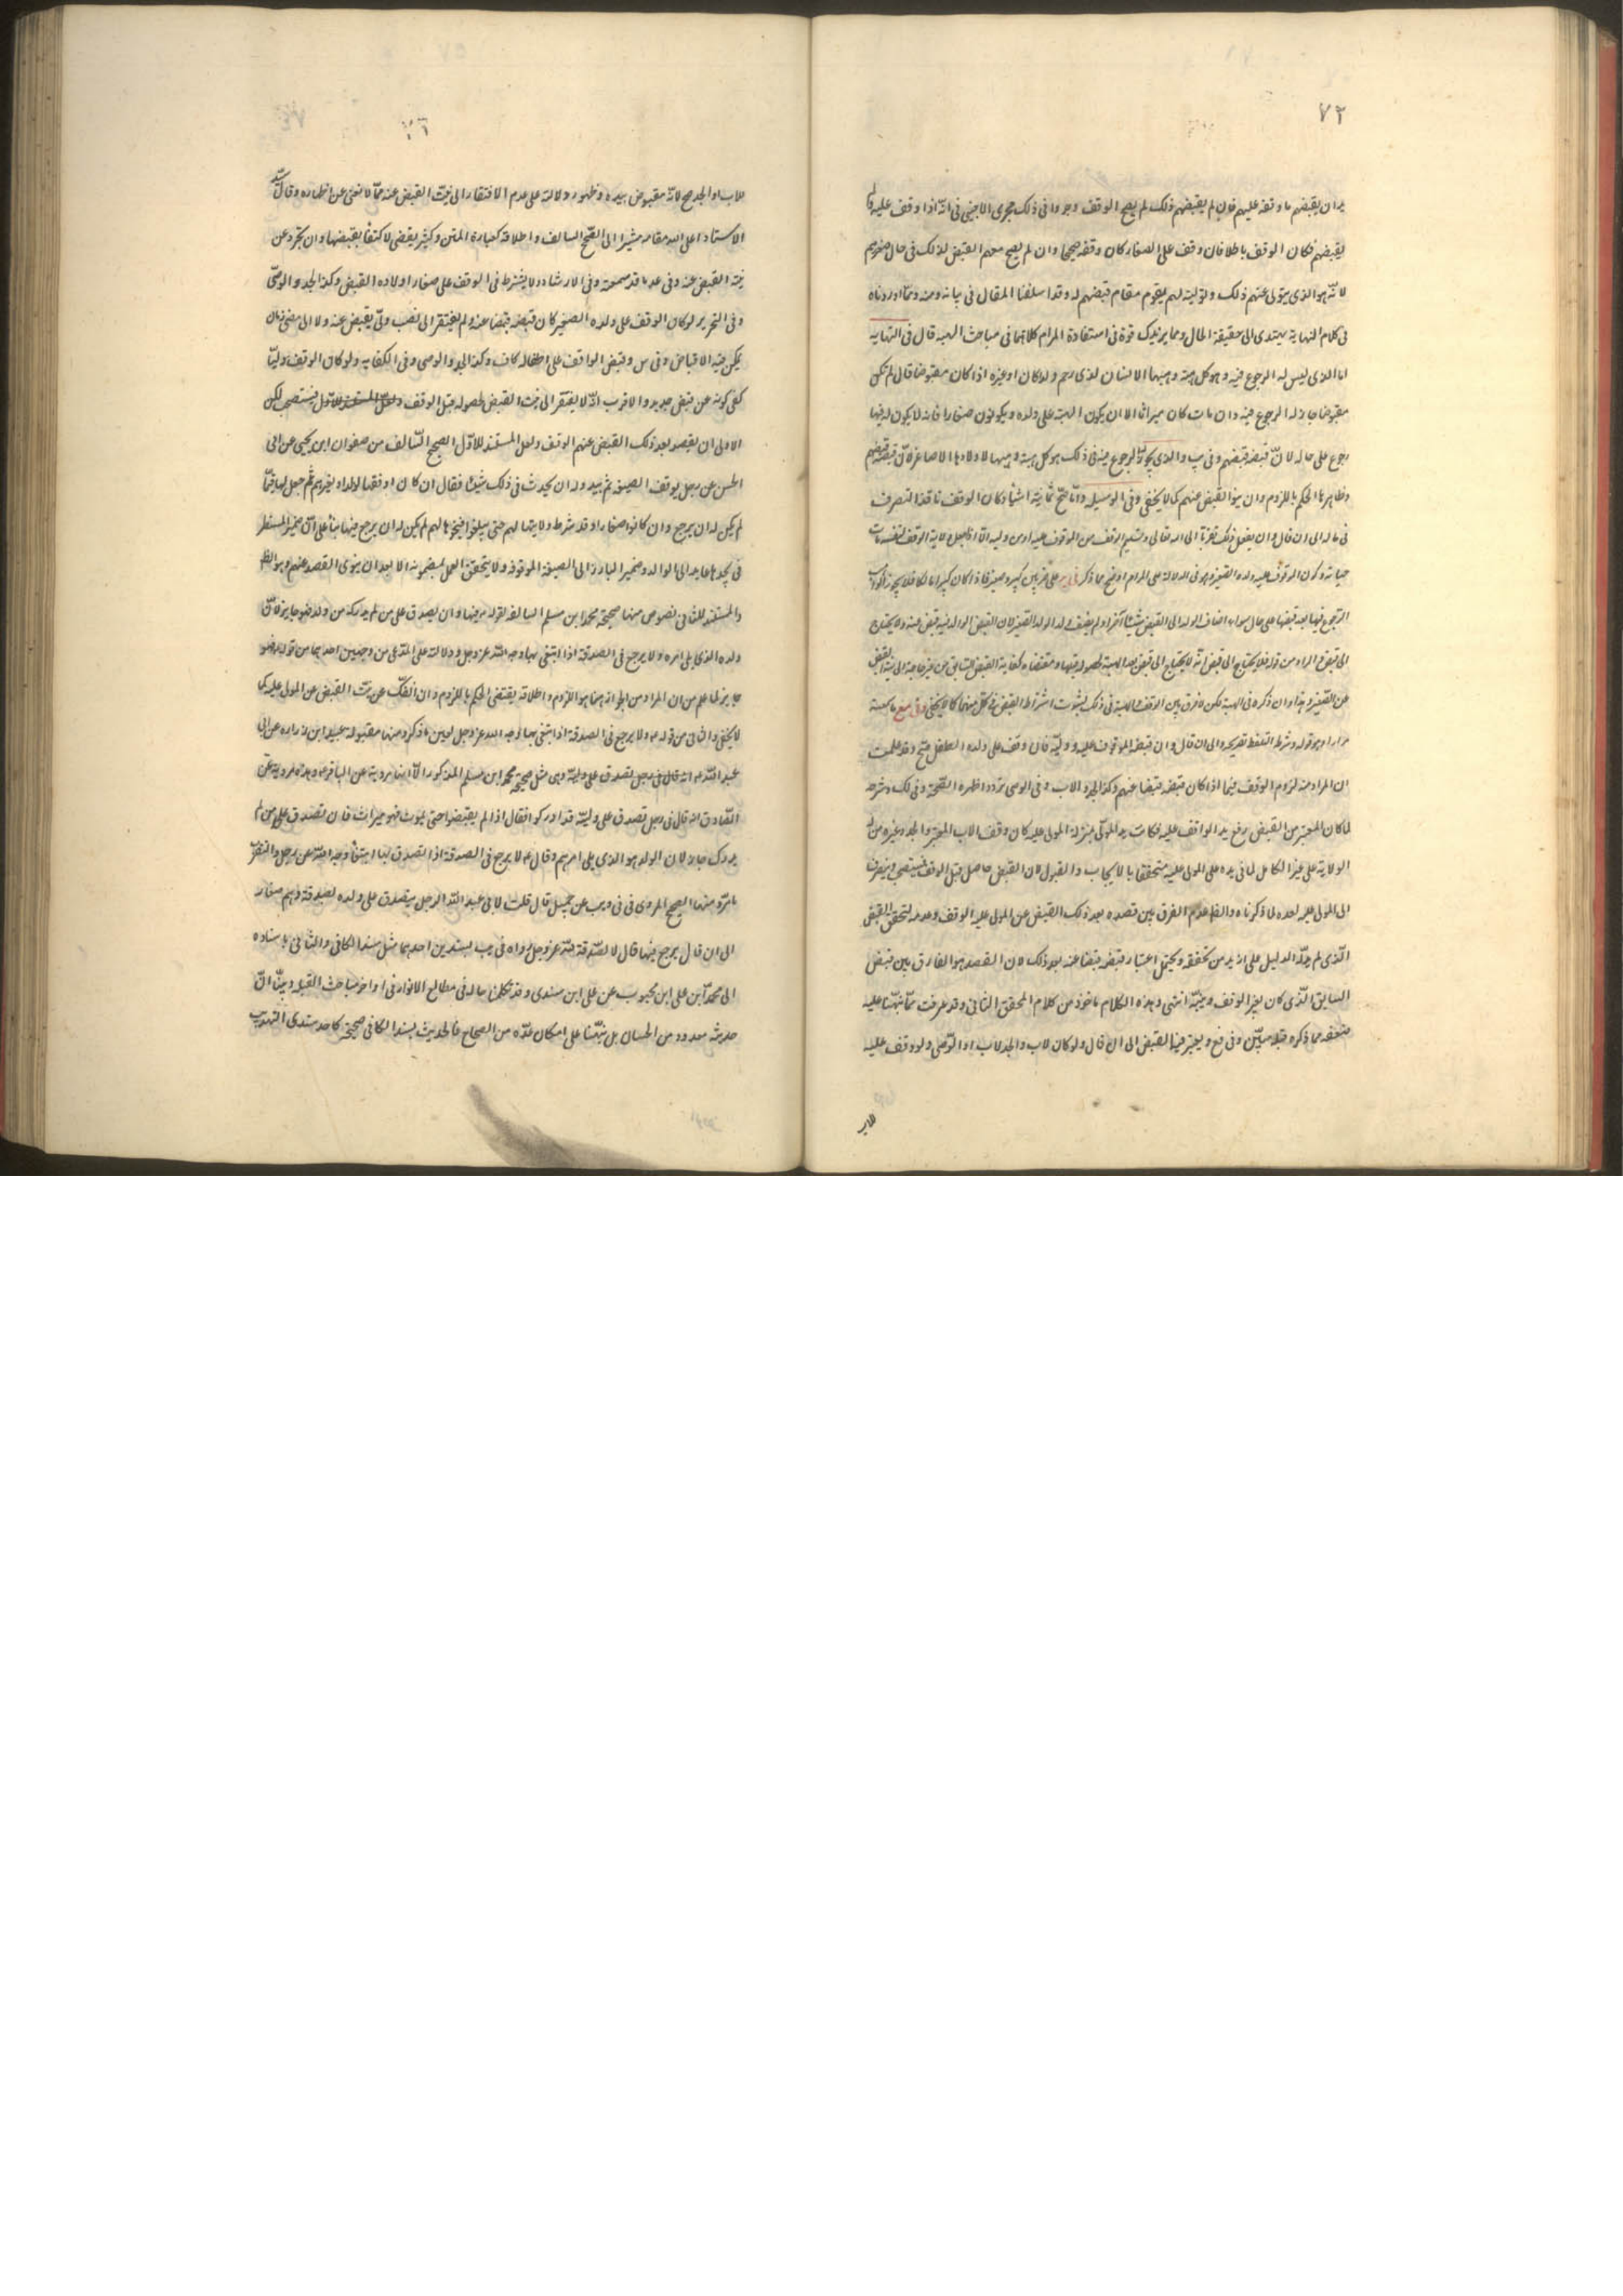 ٧٢
يد ان يقبضهم ما وقفه عليهم فان لم يقبضهم ذلك لم يصح الوقف وجروا فى ذلك مجرى الاجنبى فى انه اذا وقف عليه ولم
يقبضهم فكان الوقف باطلا فان وقف على الصغار كان وقفه صحيحا وان لم يصح معهم القبض لذلك فى حال صغرهم
لانه هو الذى يتولى عنهم ذلك وتوليته لهم يقوم مقام قبضهم له وقد اسلفنا المقال فى بيانه ومنه ومما اوردناه
فى كلام النهاية يهتدى الى حقيقة الحال ومما يزيدك قوة فى استفادة المرام كلامهما فى مباحث الهبه قال فى النهايه
اما الذى ليس له الرجوع فيه وهو كل هبة وهبها الانسان لذى رحم ولدا كان او غيره اذا كان مقبوضا قال لم تكن
مقبوضا جاز له الرجوع فيه وان مات كان ميراثا الا ان يكون الهبة على ولده ويكونون صغارا فانه لا يكون له فيها
رجوع على حاله لان قبضه قبضهم وفى والذى يجوز له الرجوع فى ذلك هو كل هبة وهبها لاولادها الاصاغر لان قبضه قبضهم
وظاهرها الحكم باللزوم وان ينوا القبض عنهم كما لا يخفى وفى الوسيله وانما صح ثمانية اشياء كان الوقف نافذ التصرف
فى ماله الى ان قال وان يفعل ذلك تقربا الى الله تعالى وتسليم الوقف من الموقوف عليه اوس وليه الا اذا جعل ولاية الوقف لنفسه مدة
حياته وكان الموقوف عليه ولده الصغير وهو فى الدلالة على المرام اوضح مما ذكر كبير وصغير فاذا كان كبيرا مالكا فلا يجوز
الرجوع فيها بعد قبضها على حال سواء اضاف الولد الى القبض شيئا آخر او لم يضف والولد الصغير لان القبض الوالد فيه قبض عنه ولا يحتاج
الى قبض المراد من قوله فلا يحتاج الى قبض انه لا يحتاج الى قبض بعد الهبة لحصوله قبلها ومقتضاه كفاية القبض السابق من غير حاجة الى نية القبض
عن الصغير وهذا وان ذكره فى الهبة لكن لا فرق بين الوقف والهبة فى ذلك لثبوت اشتراط القبض فى كل منهما كما لا يخفى وفى مع ما سمعته
مرارا وهو قوله وشرط التلفظ بصريحه الى ان قال وان قبض الموقوف عليه ووليه فان وقف على ولده الطفل صح وقد علمت
ان المراد منه لزوم الوقف فيما اذا كان قبضه قبضا عنهم وكذا الجد والاب وفى الوصى تردد اظهره الصحة وفى لك وشرحه
لما كان المعتبر من القبض رفع يد الواقف عليه فكانت يد المولى بمنزلة المولى عليه كان وقف الاب المعتبر والجد وغيره ممن له
الولاية على غير الكامل لما فى يده على المولى عليه متحققا بالايجاب والقبول لان القبض حاصل قبل الوقف فيستصحب وينصرف
الى المولى عليه بعده لما ذكرناه والظاهر عدم الفرق بين قصده بعد ذلك القبض عن المولى عليه الوقف وعدمه لتحقق القبض
الذى لم يدل الدليل على ازيد من تحققه ويحتمل اعتبار قبضه قبضا عنه بعد ذلك لان القصد هو الفارق بين قبض
السابق الذى كان لغير الوقف وبينه انتهى وهذه الكلام ماخوذ من كلام المحقق الثانى وقد عرفت مما نبهنا عليه
ضعفه مما ذكره قبله مبين وفى فع ويعتبر فيها القبض الى ان قال ولو كان لاب والجد لاب او الوصى ولو وقف عليه
للاب
للاب او الجد صح لانه مقبوض بيده وظهور دلالته على عدم الافتقار الى نية القبض عنه مما لا نغنى عن اظهاره وقال السيد
الاستاد اعلى الله مقامه مشيرا الى الصحيح السالف واطلاقه كعبارة المتن وكثير يقتضى الاكتفا بقبضها وان تجرد عن
نية القبض عنه وفى عد ما قد سمعته وفى الارشاد ولا يشترط فى الوقف على صغار اولاده القبض وكذا الجد والوصى
وفى التحرير لو كان الوقف على ولده الصغير كان قبضه قبضا عنه ولم يفتقر الى نصب ولى يقبض عنه ولا الى مضى زمان
يمكن فيه الاقباض وفى س وقبض الواقف على اطفاله كاف وكذا الجد والوصى وفى الكفايه ولو كان الوقف وليا
كفى كونه عن قبض جديد والاقرب انه لا يفتقر الى نية القبض لحصوله قبل الوقف فيستصحب لكن
الاولى ان يقصد بعد ذلك القبض عنهم الوقف ولعل المستند للاول الصحيح السالف من صفوان ابن يحيى عن ابى
الحسن عن رجل يوقف الضيعه ثم يبدو له ان يحدث فى ذلك شيئا فقال ان كان اوقفها لولده او لغيرهم ثم جعل لها قيما
لم يكن له ان يرجع وان كانوا صغارا وقد شرط ولايتها لهم حتى يبلغوا فيحوزها لهم لم يكن له ان يرجع فيها بناء على ان ضمير المستتر
فى يحوزها عايد الى الوالد وضمير البارز الى الضيعه الموقوفه ولا يتحقق العمل بمضمونه الا بعد ان ينوى القصد عنهم وهو الظ
والمستند للثانى نصوص منها صحيحة محمد ابن مسلم السالفة لقوله فيها وان تصدق على من لم يدرك من ولده فهو جايز لان
ولده الذى يلى امره ولا يرجع فى الصدقة اذا ابتغى بها وجه الله عز وجل ودلالته على المدعى من وجهين احدهما من قوله فهو
جايز لما علم من ان المراد من الجواز هنا هو اللزوم واطلاقه يقتضى الحكم باللزوم وان انفك عن نية القبض عن المولى عليه كما
لا يخفى والثانى من قوله ولا يرجع فى الصدقة اذا ابتغى بها وجه الله عز وجل لعين ما ذكر ومنها مقبولة عبيد ابن زراره عن ابى
عبد الله انه قال فى رجل تصدق على ولده وهى مثل صحيحة محمد ابن مسلم المذكور الا انها مروية عن الباقر وهذه مروية عن
الصادق انه قال فى رجل تصدق على ولده قد ادركوا فقال اذا لم يقبضوا حتى يموت فهو ميراث فان تصدق على من لم
يدرك جاز لان الولد هو الذى يلى امرهم وقال لا يرجع فى الصدقة اذا تصدق بها ابتغاء وجه الله عز وجل والتقريب
مامر ومنها الصحيح المروى فى فى ويب عن جميل قال قلت لابى عبد الله الرجل يتصدق على ولده بصدقة وهم صغار
الى ان قال يرجع فيها قال لا الصدقة لله عز وجل رواه فى يب بسندين احدهما مثل سند الكافى والثانى باسناده
الى محمد ابن على ابن محبوب عن على ابن سندى وقد تكلمنا حاله فى مطالع الانوار فى اواخر مباحث القبله وبينا ان
حديثه معدود من الحسان بل نبهنا على امكان عده من الصحاح فالحديث بسند الكافى صحيح كاحد سندى التهذيب